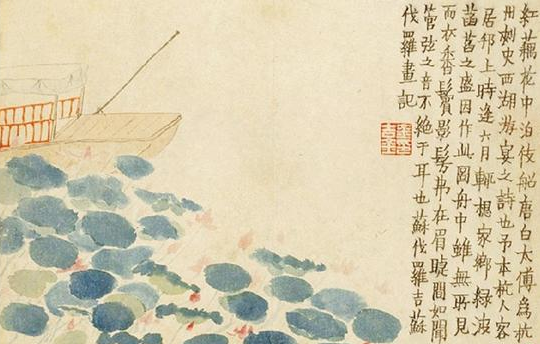 紅藕花中泊伎船唐白太傅為杭
州刺史西湖游宴之詩也予本杭人客
居邗上時逢六月輒想家鄉綠波
菡萏之盛因作此圖舟中雖無所見
而衣香鬢影髣髴在眉睫間如聞
管弦之音不絕于耳也蘇伐羅吉蘇
伐羅畫記